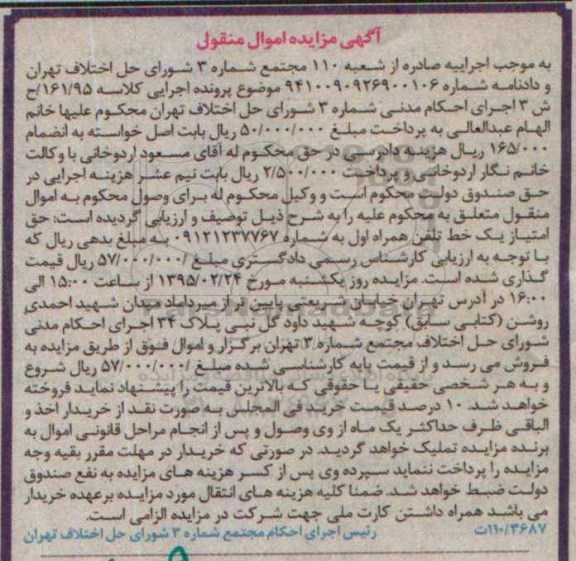 آگهی مزایده اموال منقول
به موجب اجراییه صادره از شعبه ۱۱۰ مجتمع شماره ۳ شورای حل اختلاف تهران
و دادنامه شماره ۹۴۱۰۰۹۰۹۲۶۹۰۰۱۰۶ موضوع پرونده اجرایی کلاسه ۱۶۱/۹۵/ح
ش ۳ اجرای احکام مدنی شماره ۳ شورای حل اختلاف تهران محکوم علیها خانم
الهام عبدالعالی به پرداخت مبلغ ۵۰/۰۰۰/۰۰۰ ریال بابت اصل خواسته به انضمام
۱۶۵/۰۰۰ ریال هزینه دادرسی در حق محکوم له آقای مسعود اردوخانی با وکالت
خانم نگار اردوخانی و پرداخت ۲/۵۰۰/۰۰۰ ریال بابت نیم عشر هزینه اجرایی در
حق صندوق دولت محکوم است و وکیل محکوم له برای وصول محکوم به اموال
منقول متعلق به محکوم علیه را به شرح ذیل توصیف و ارزیابی گردیده است: حق
امتیاز یک خط تلفن همراه اول به شماره ۰۹۱۲۱۲۳۷۷۶۷ به مبلغ بدهی ریال که
با توجه به ارزیابی کارشناس رسمی دادگستری مبلغ ۵۷/۰۰۰/۰۰۰/ ریال قیمت
گذاری شده است. مزایده روز یکشنبه مورخ ۱۳۹۵/۰۲/۲۴ از ساعت ۱۵:۰۰ الی
۱۶:۰۰ در آدرس تهران خیابان شریعتی پایین تر از میرداماد میدان شهید احمدی
روشن (کتابی سابق) کوچه شهید داود گل نبی پلاک ۳۴ اجرای احکام مدنی
شورای حل اختلاف مجتمع شماره ۳ تهران برگزار و اموال فوق از طریق مزایده به
فروش می رسد و از قیمت پایه کارشناسی شده مبلغ ۵۷/۰۰۰/۰۰۰/ ریال شروع
و به هر شخصی حقیقی یا حقوقی که بالاترین قیمت را پیشنهاد نماید فروخته
خواهد شد. ۱۰ درصد قیمت خرید فی المجلس به صورت نقد از خریدار اخذ و
الباقی ظرف حداکثر یک ماه از وی وصول و پس از انجام مراحل قانونی اموال به
برنده مزایده تملیک خواهد گردید. در صورتی که خریدار در مهلت مقرر بقیه وجه
مزایده را پرداخت ننماید سپرده وی پس از کسر هزینه های مزایده به نفع صندوق
دولت ضبط خواهد شد. ضمنا کلیه هزینه های انتقال مورد مزایده برعهده خریدار
می باشد همراه داشتن کارت ملی جهت شرکت در مزایده الزامی است.
۱۱۰/۳۶۸۷/ت رئیس اجرای احکام مجتمع شماره ۳ شورای حل اختلاف تهران